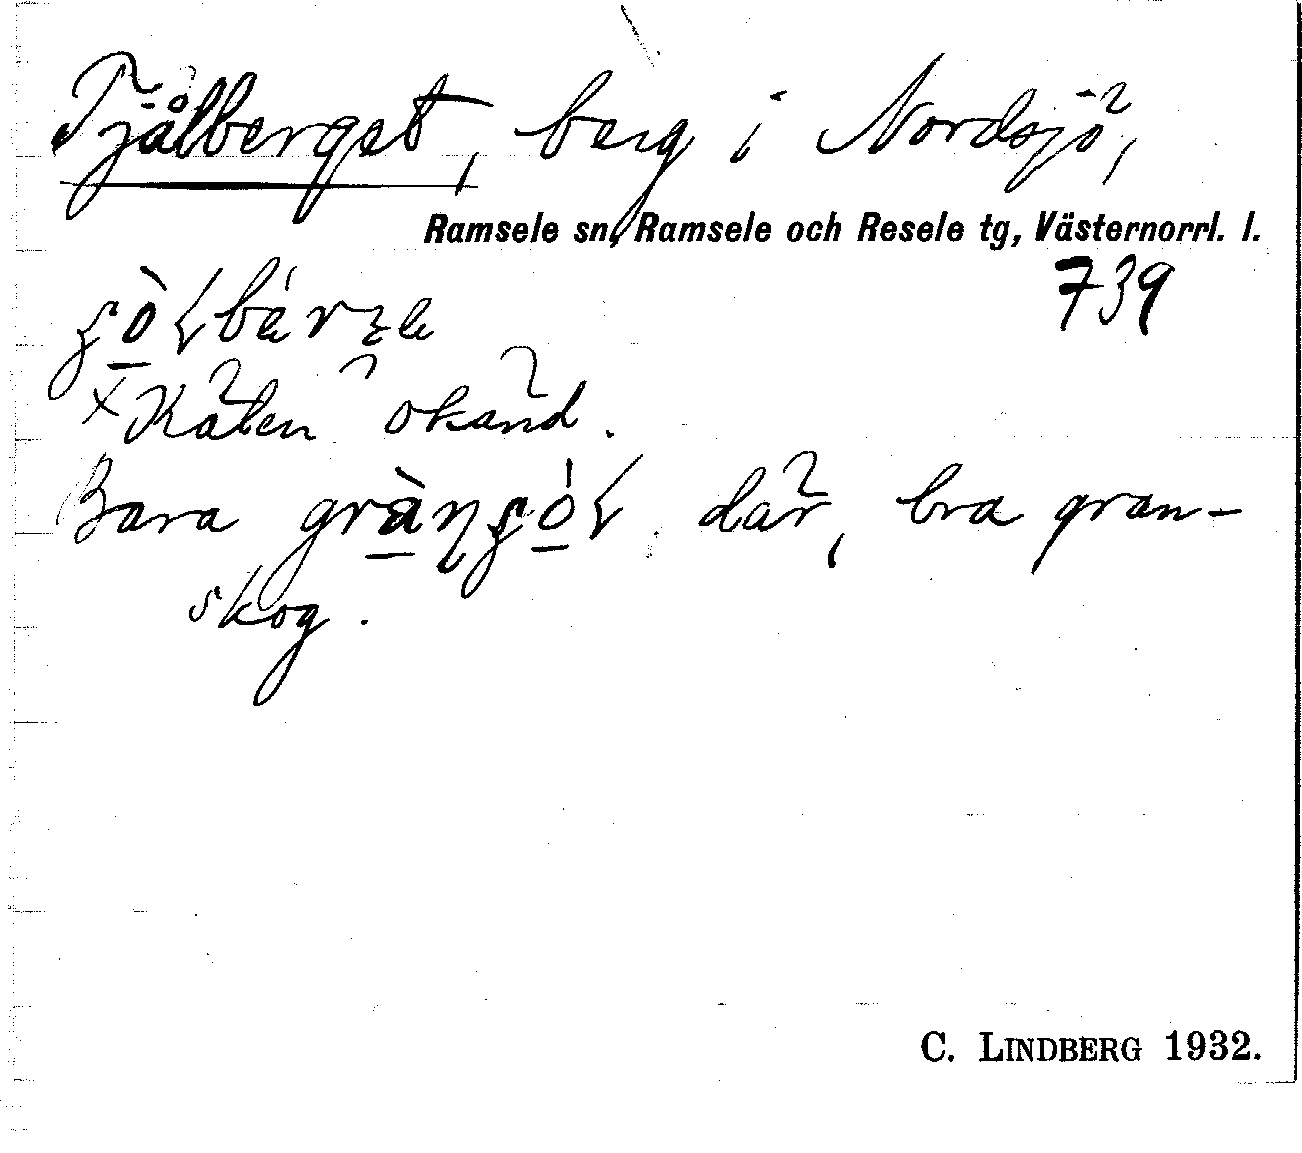 Tjålberget, berg i Nordsjö,
Ramsele sn, Ramsele och Resele tg, Västernorrl. l.
739
×Kålen okänd.
Bara där, bra gran-
skog.
C. LINDBERG 1932.